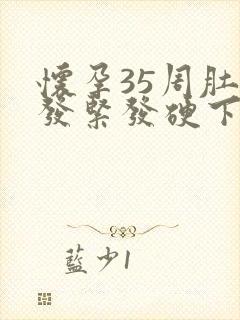 懷孕35周肚
發緊發硬下
藍少1